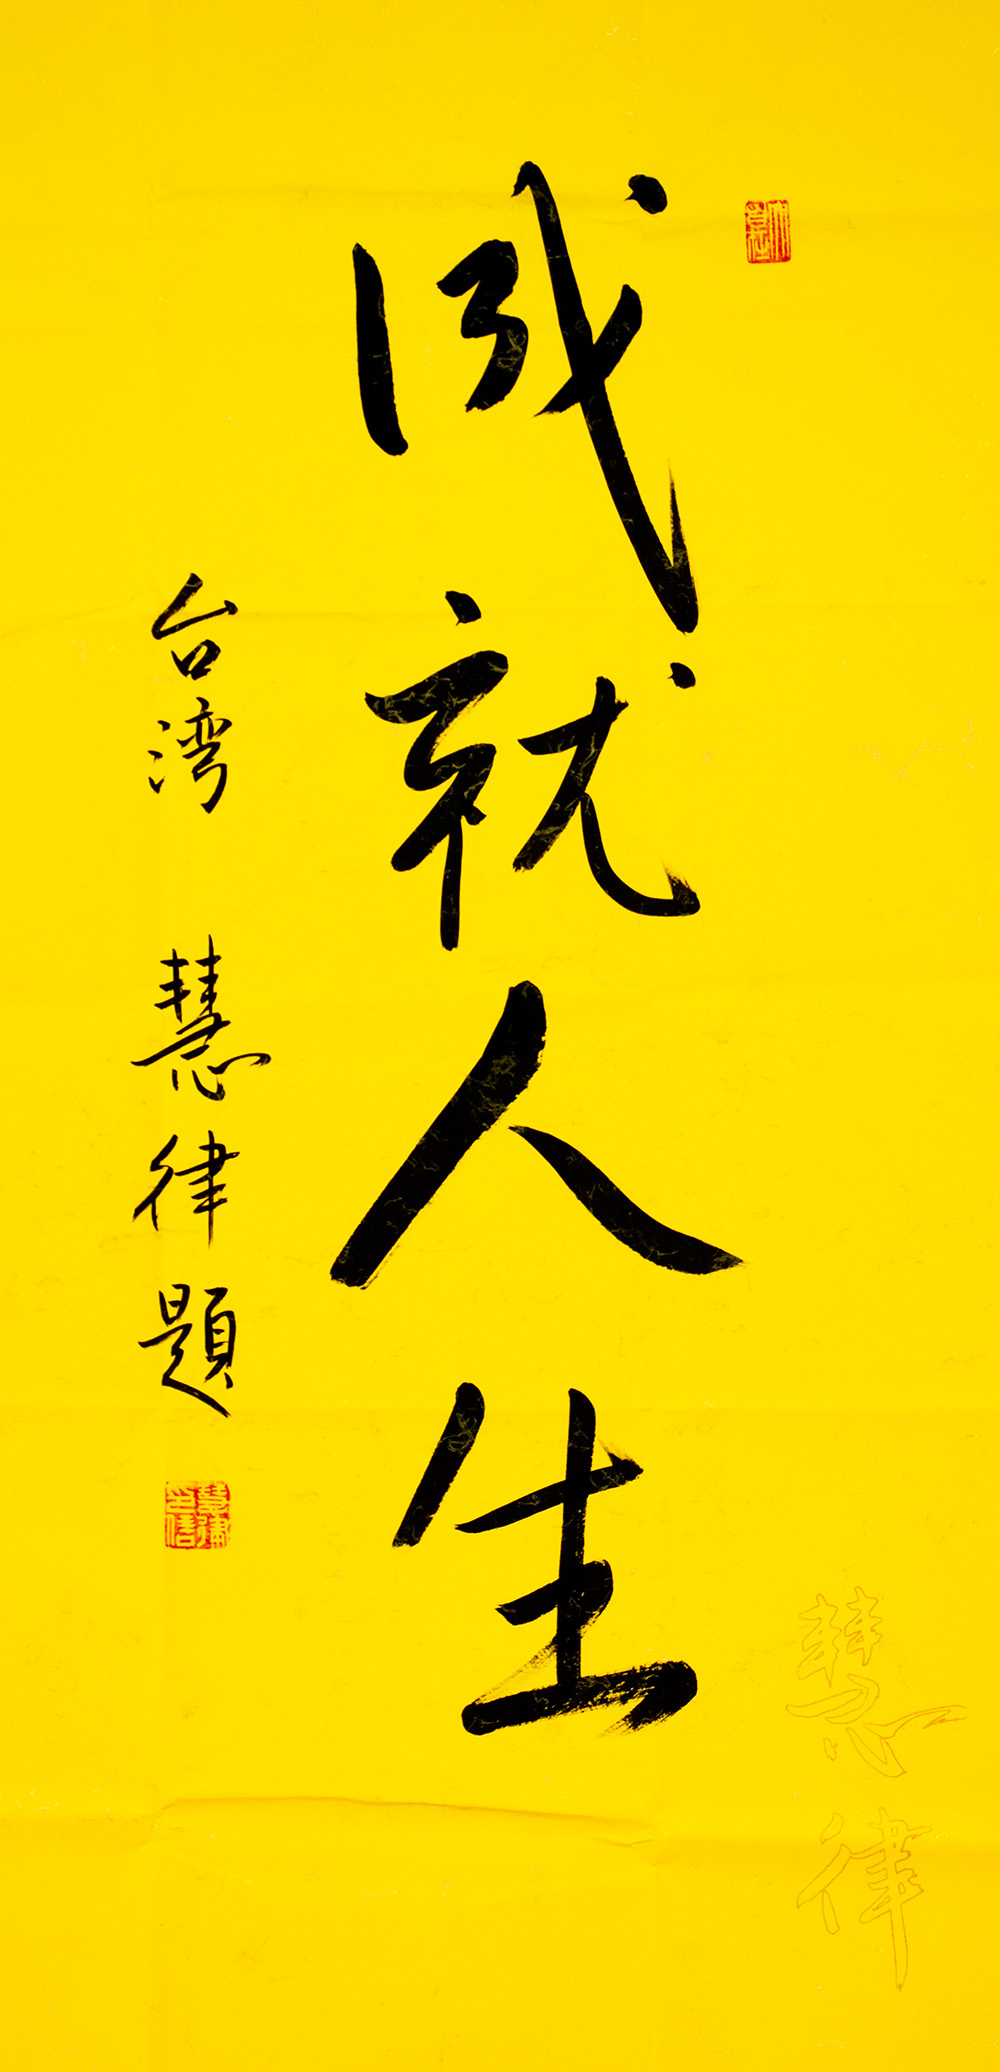 成就人生
台湾 慧律題
慧律